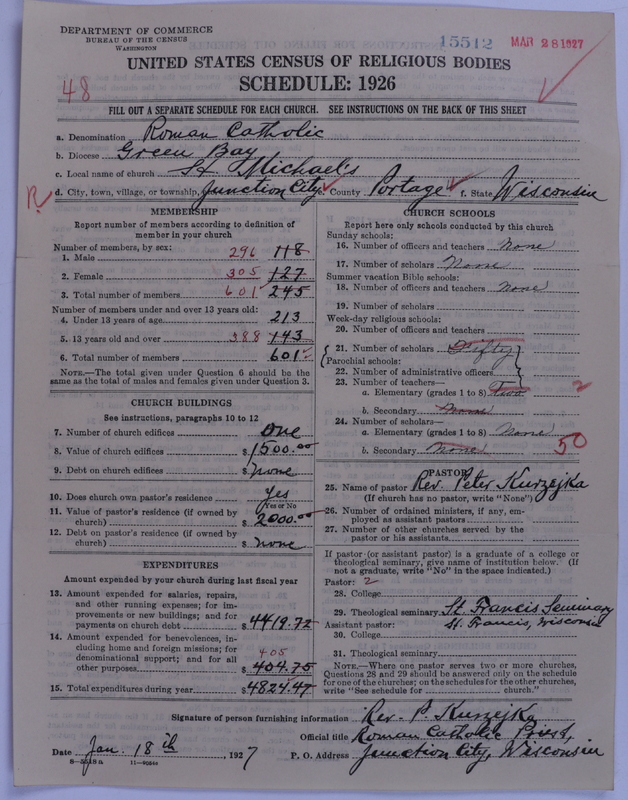 DEPARTMENT OF COMMERCE
BUREAU OF THE CENSUS
WASHINGTON
15512 MAR 28 1927
UNITED STATES CENSUS OF RELIGIOUS BODIES
SCHEDULE: 1926
48
FILL OUT A SEPARATE SCHEDULE FOR EACH CHURCH. SEE INSTRUCTIONS ON THE BACK OF THIS SHEET
a. Denomination Roman Catholic
b. Diocese Green Bay
c. Local name of church St. Michael's
R. d. City, town, village, or township, Junction City e. County Portage f. State Wisconsin
MEMBERSHIP
Report number of members according to definition of
member in your church
Number of members, by sex:
1. Male 296 118
2. Female 305 127
3. Total number of members 601 245
Number of members under and over 13 years old:
4. Under 13 years of age 213
5. 13 years old and over 388 143
6. Total number of members 601
NOTE.—The total given under Question 6 should be the
same as the total of males and females given under Question 3.
CHURCH BUILDINGS
See instructions, paragraphs 10 to 12
7. Number of church edifices one
8. Value of church edifices $ 1500.00
9. Debt on church edifices $ none
10. Does church own pastor's residence yes
(Yes or No)
11. Value of pastor's residence (if owned by
church) $ 2000.00
12. Debt on pastor's residence (if owned by
church) $ none
EXPENDITURES
Amount expended by your church during last fiscal year
13. Amount expended for salaries, repairs,
and other running expenses; for im-
provements or new buildings; and for
payments on church debt $ 4419.72
14. Amount expended for benevolences, in-
cluding home and foreign missions; for
denominational support; and for all
other purposes 405 $ 404.75
15. Total expenditures during year $ 4824.47
CHURCH SCHOOLS
Report here only schools conducted by this church
Sunday schools:
16. Number of officers and teachers none
17. Number of scholars None
Summer vacation Bible schools:
18. Number of officers and teachers none
19. Number of scholars
Week-day religious schools:
20. Number of officers and teachers
21. Number of scholars Fifty
Parochial schools:
22. Number of administrative officers
23. Number of teachers—
a. Elementary (grades 1 to 8) Two 2
b. Secondary None
24. Number of scholars—
a. Elementary (grades 1 to 8) None 50
b. Secondary none
PASTOR
25. Name of pastor Rev. Peter Kurzejka
(If church has no pastor, write "None")
26. Number of ordained ministers, if any, em-
ployed as assistant pastors
27. Number of other churches served by the
pastor or his assistants
If pastor (or assistant pastor) is a graduate of a college or
theological seminary, give name of institution below. (If
not a graduate, write "No" in the space indicated.)
Pastor: 2
28. College
29. Theological seminary St. Francis Seminary
Assistant pastor: St. Francis, Wisconsin
30. College
31. Theological seminary
NOTE.—Where one pastor serves two or more churches,
Questions 28 and 29 should be answered only on the schedule
for one of the churches; on the schedules for the other churches,
write "See schedule for church."
Signature of person furnishing information Rev. P. Kurzejka
Official title Roman Catholic Priest,
Date Jan. 18th, 1927 P. O. Address Junction City, Wisconsin